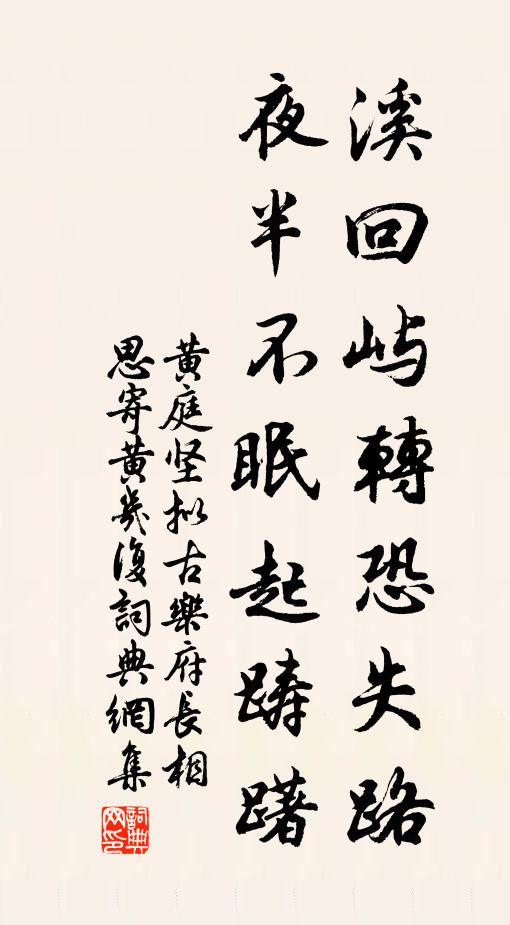 溪回屿轉恐失路
夜半不眠起踌躇
黄庭坚拟古樂府長相
思寄黄幾復詞典網集
詞典
网印